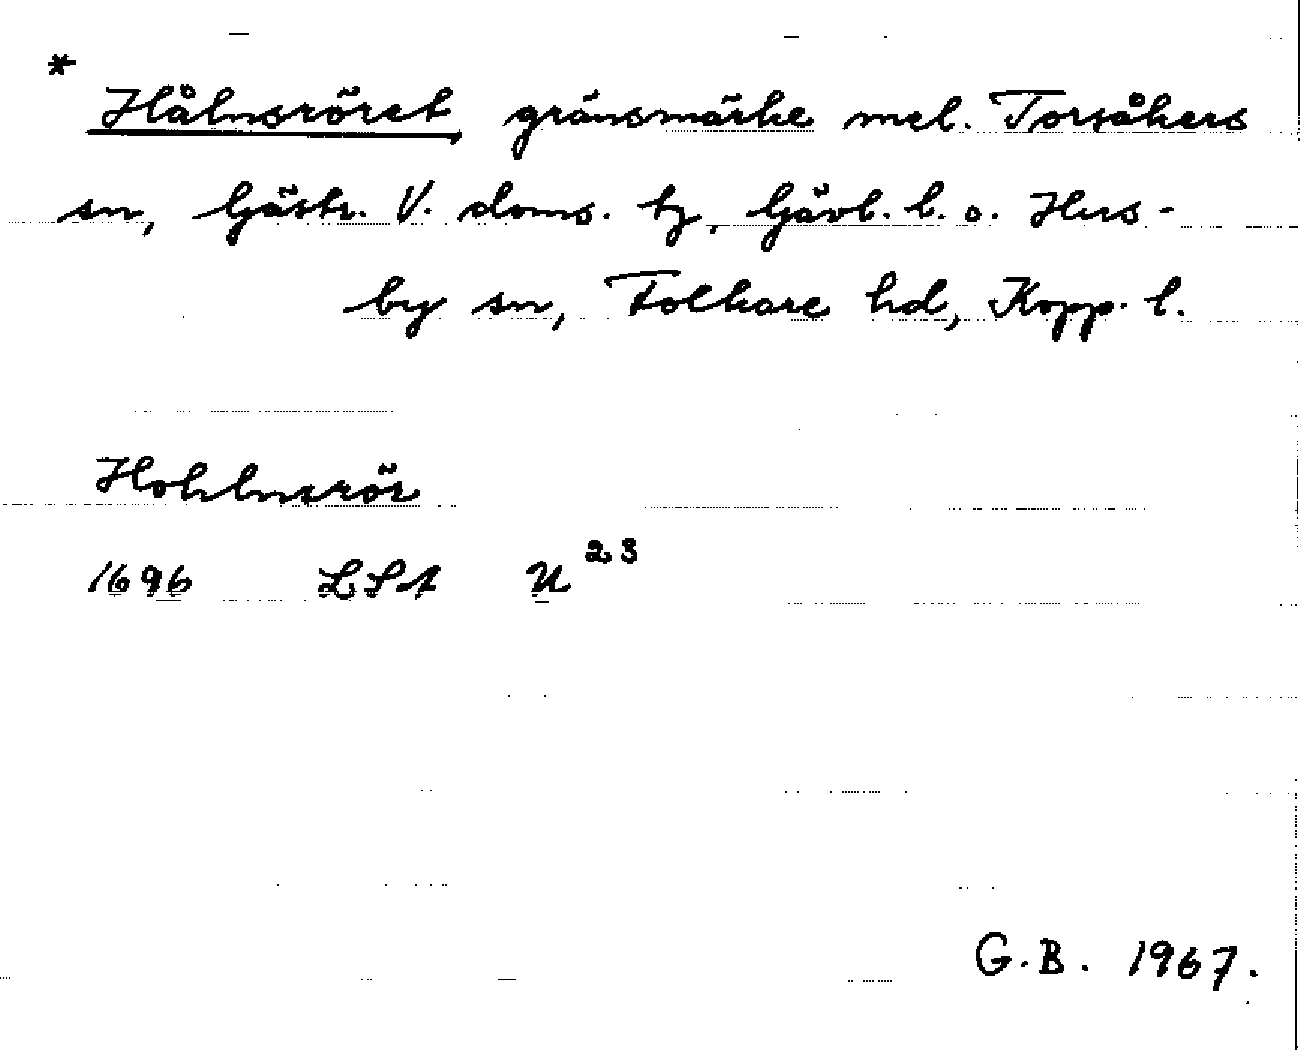 * Hålnsröret, gränsmärke mel. Torsåkers
sn, Gästr. V. doms. tg, Gävl. l. o. Hus-
by sn, Folkare hd, Kopp. l.
Hohlnsrör
1696 LSA U²³
G.B. 1967.